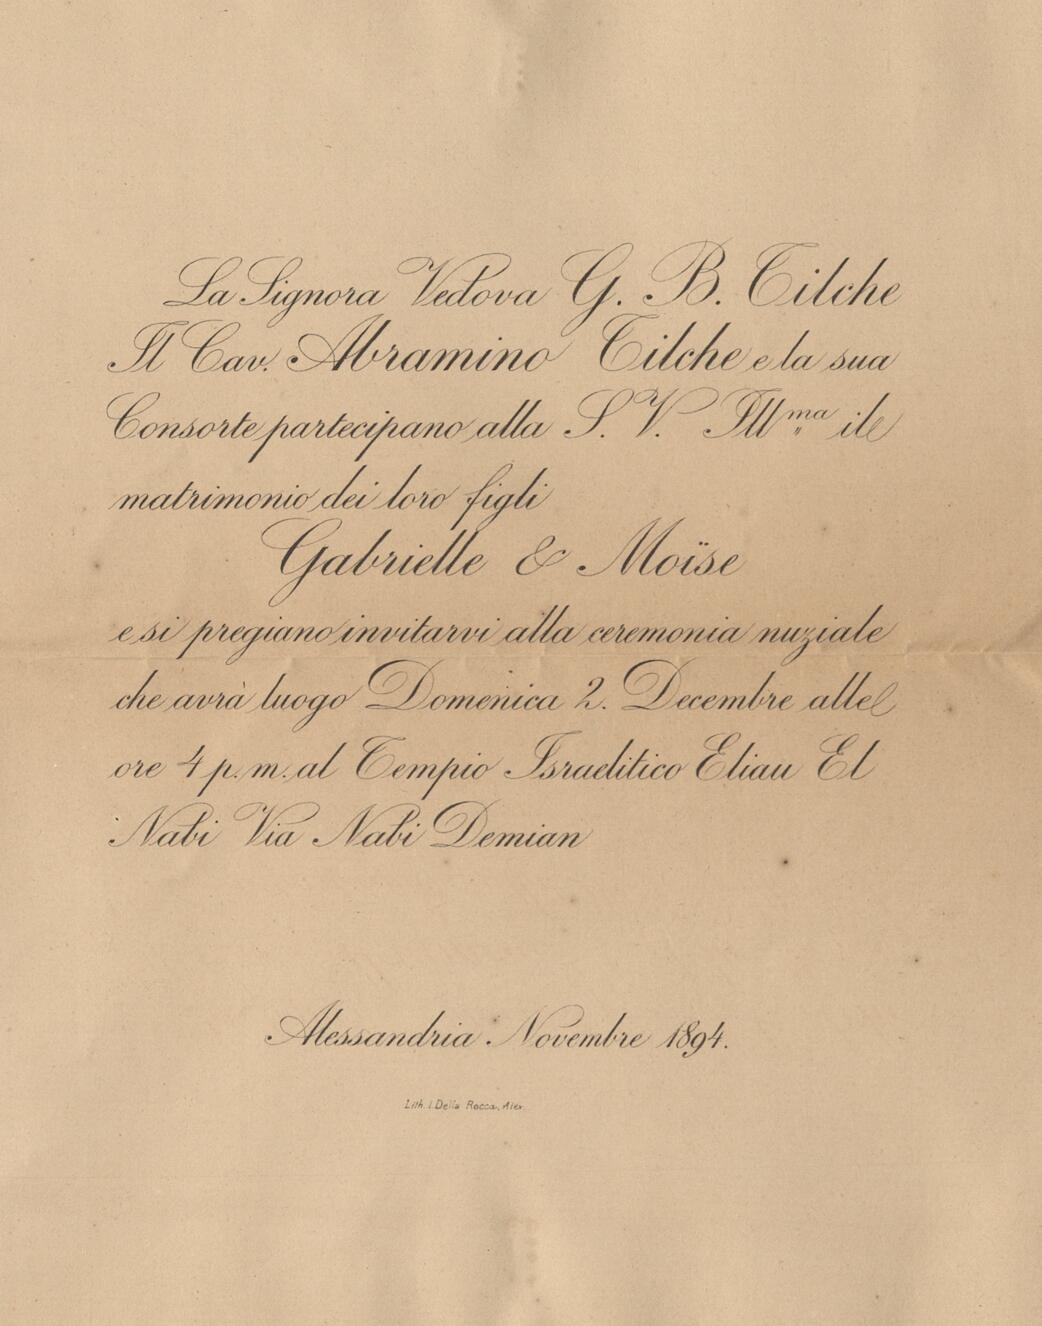 La Signora Vedova G. B. Tilche
Il Cav. Abramino Tilche e la sua
Consorte partecipano alla S. V. Ill ma il
matrimonio dei loro figli
Gabrielle & Moïse
e si pregiano invitarvi alla ceremonia nuziale
che avrà luogo Domenica 2. Decembre alle
ore 4 p. m. al Tempio Israelitico Eliau El
Nabi Via Nabi Demian
Alessandria Novembre 1894.
Lith. I. Della Rocca, Alex.